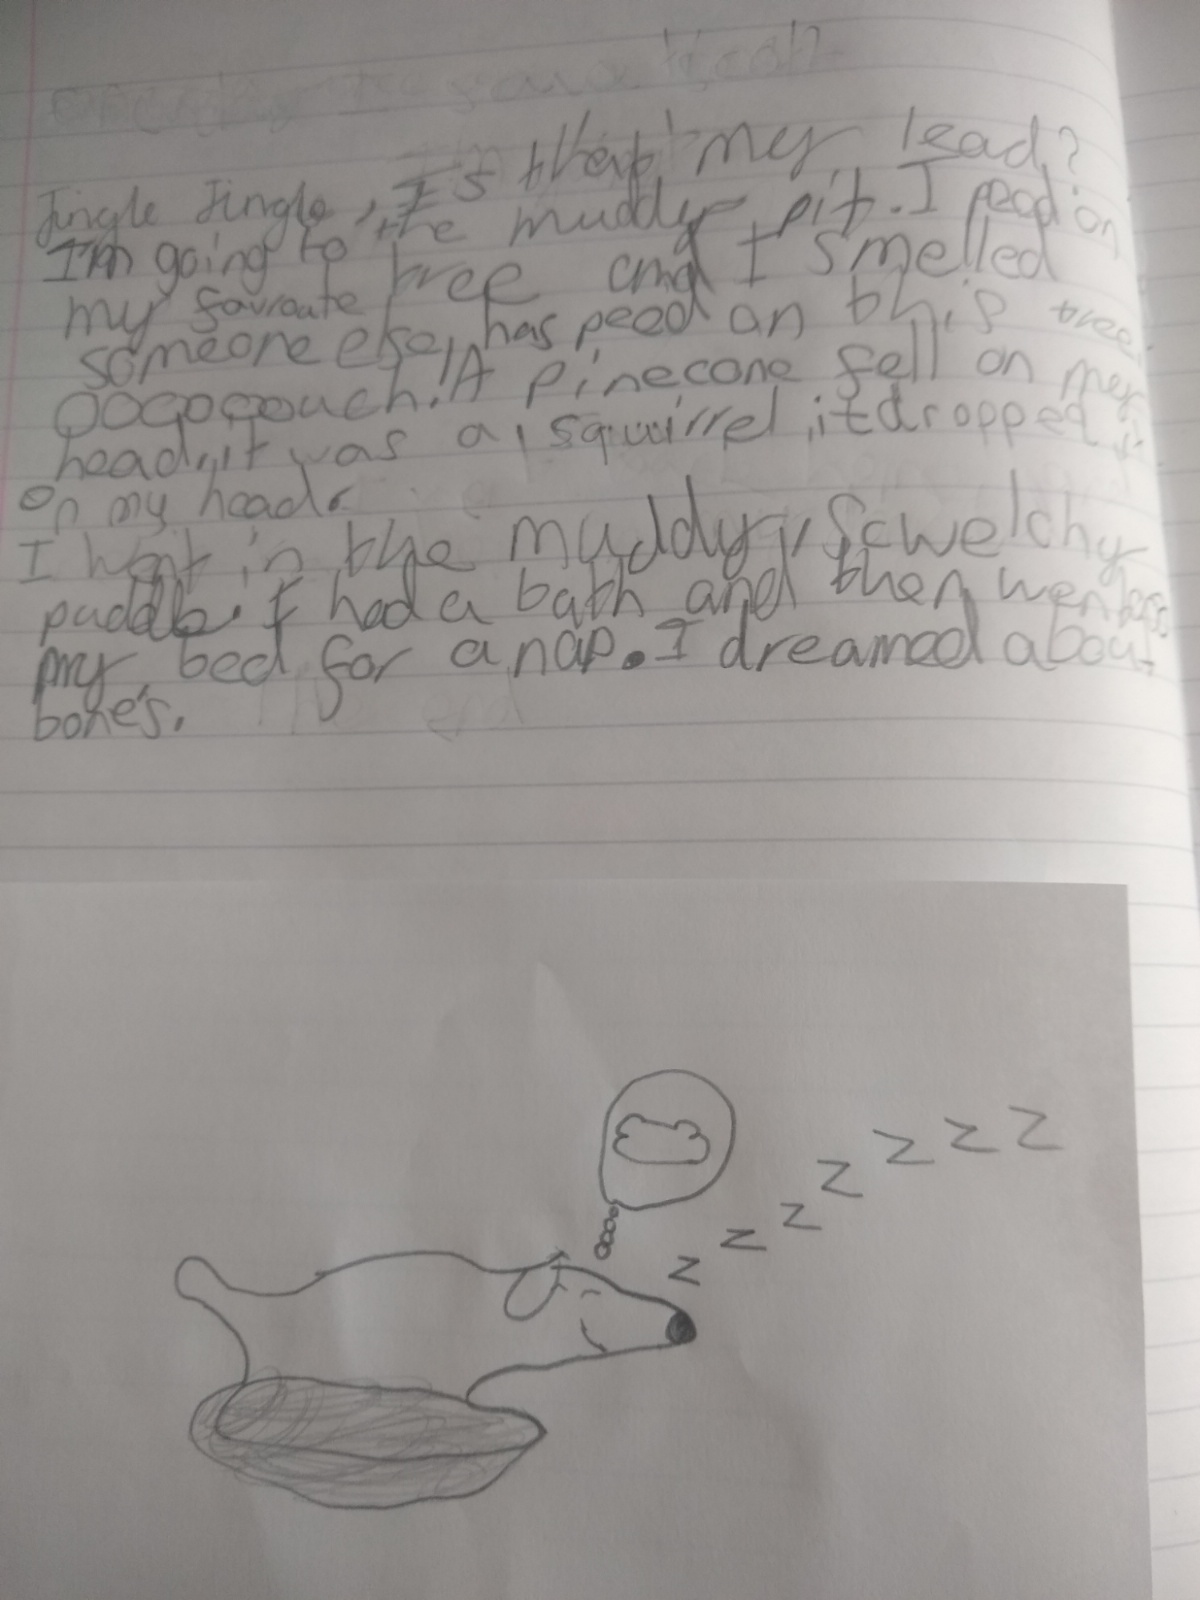 Jingle Jingle, Is that my lead?
I'm going to the muddy pit. I peed on
my favroute tree and I smelled
someone else, has peed on this tree.
OOOOOOuch! A pinecone fell on my
head, it was a squirrel, it dropped it
on my head.
I went in the muddy, Scwelchy
puddle. I had a bath and then went
my bed for a nap. I dreamed about
bones.
z z z z z z z